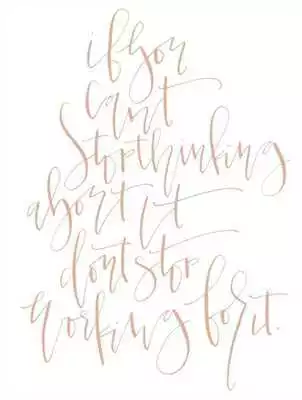 if you
cant
stop thinking
about it
dont stop
working for it.